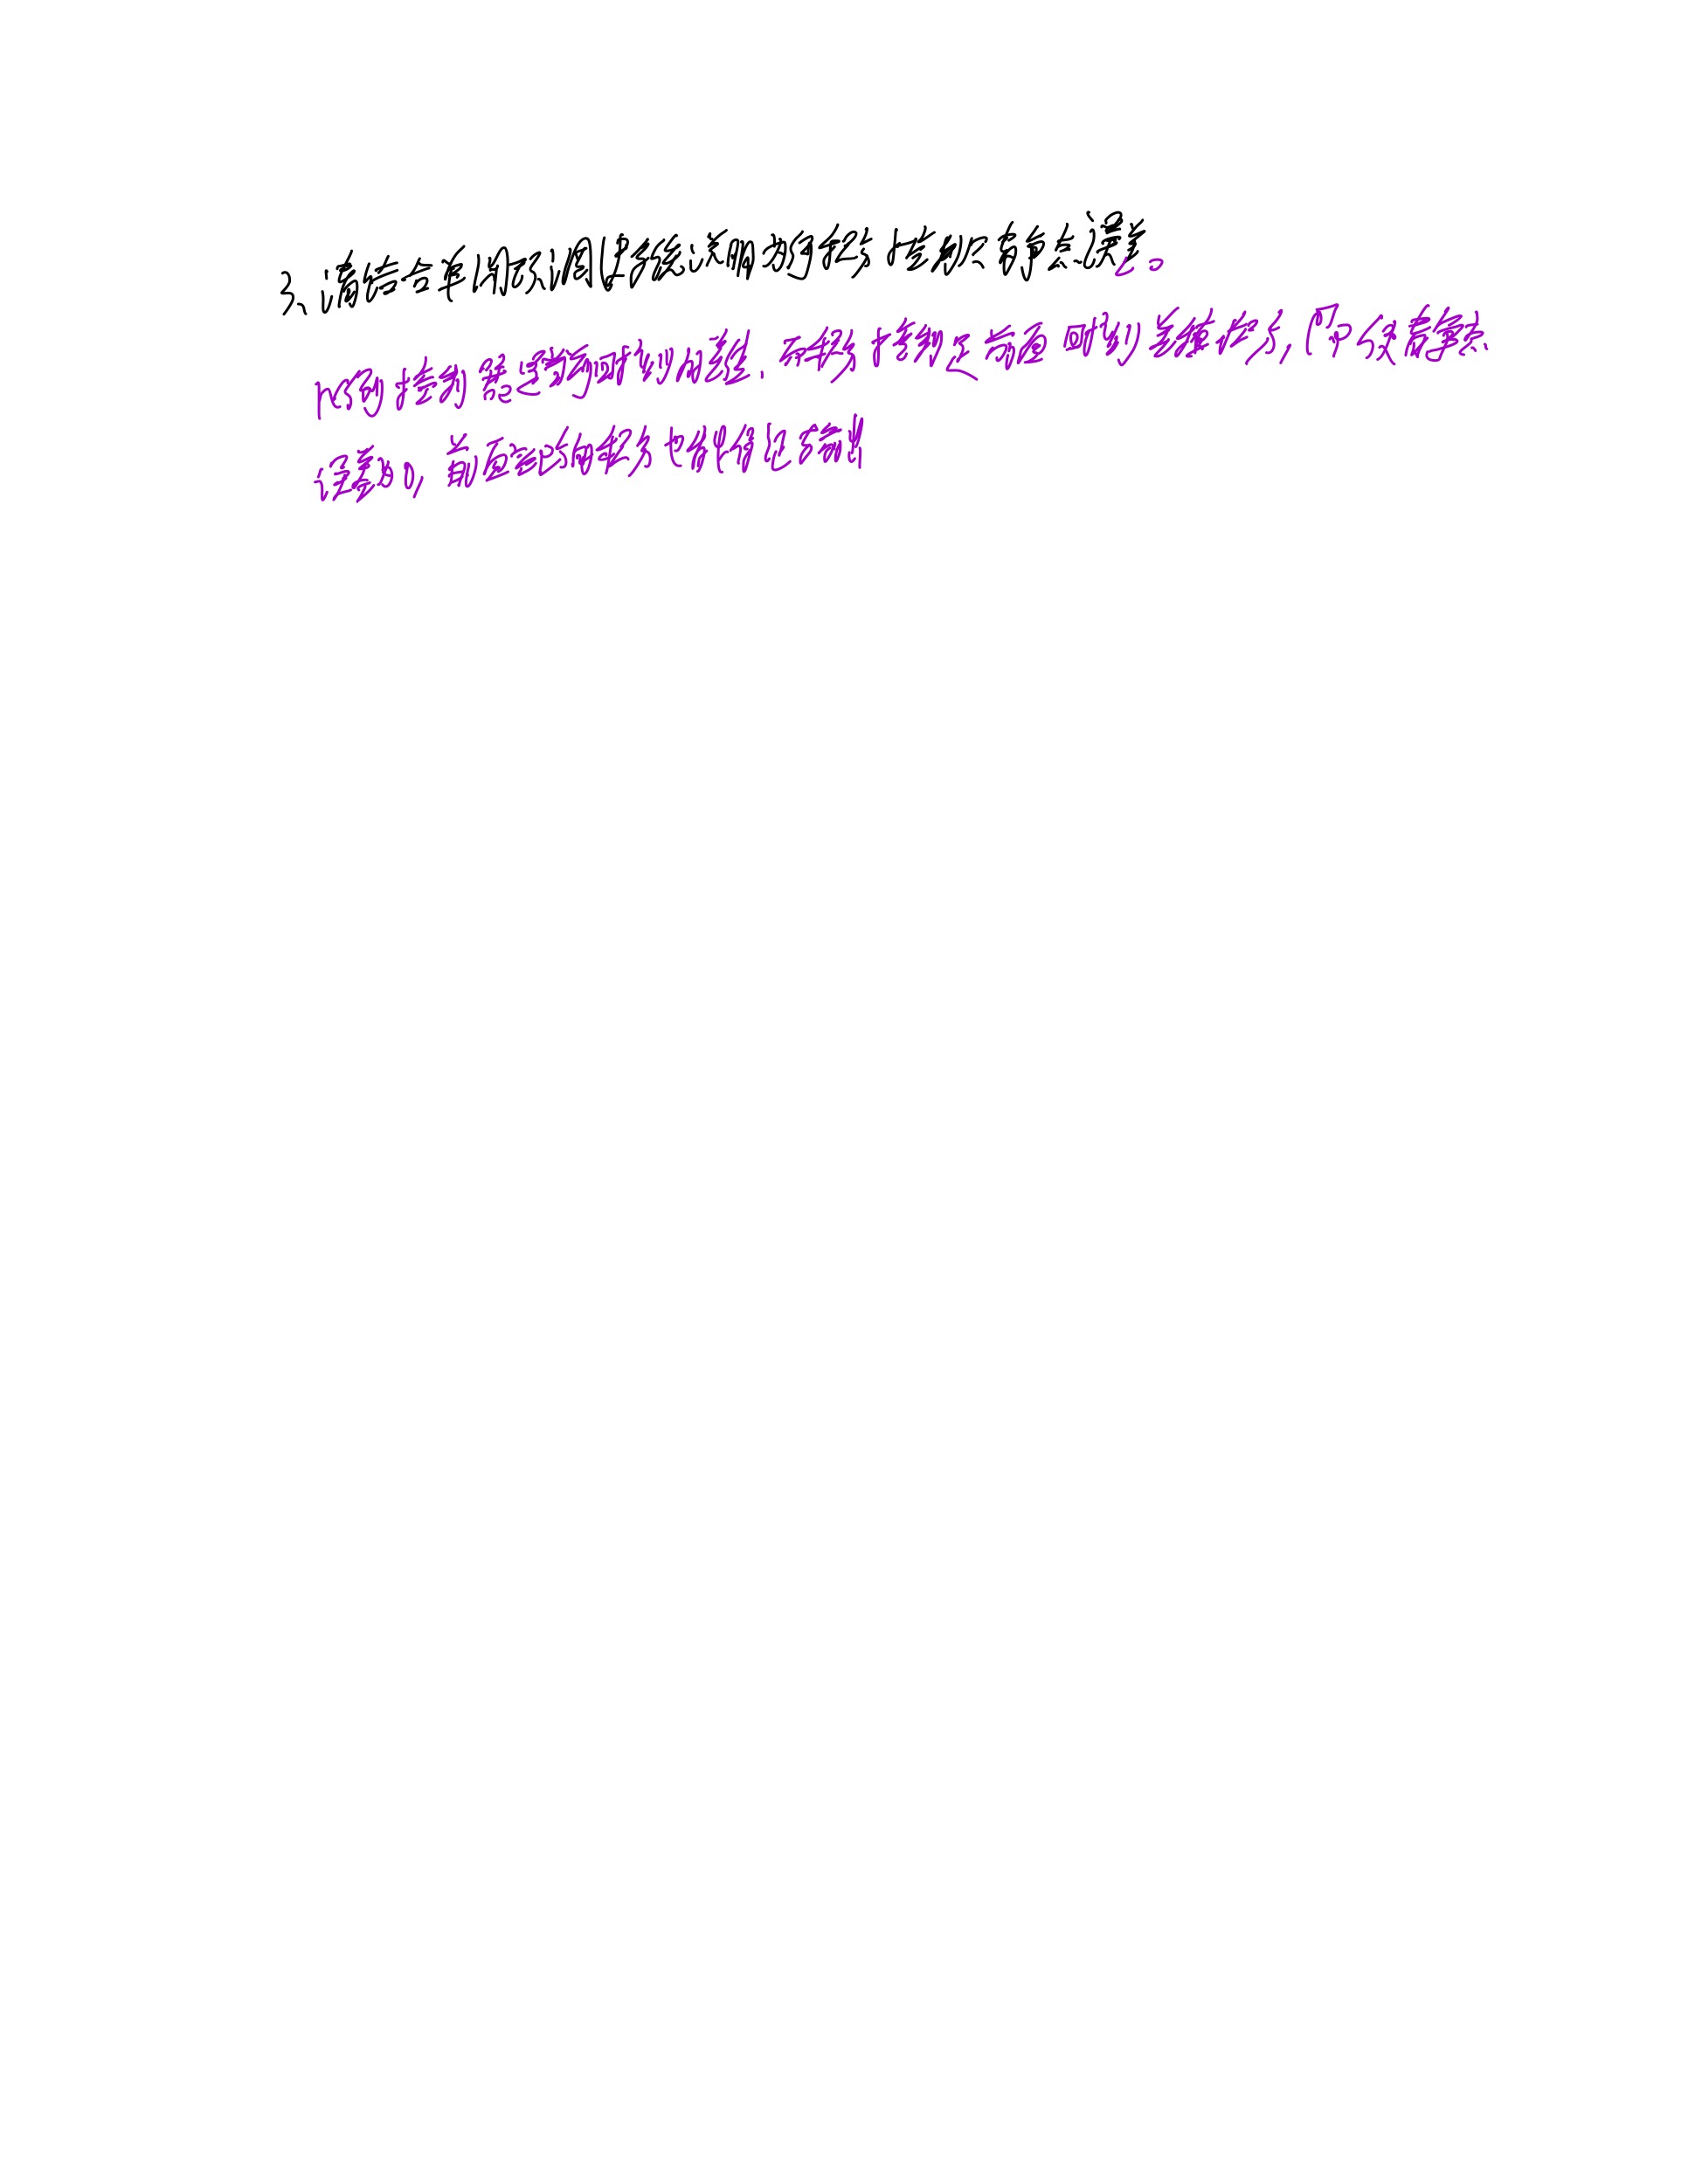 3、请结合单闭环调速系统说明为何积分控制只有静态误差。
比例控制器是当前时刻的差值,而积分控制是前面时刻差值积分,即使静态
误差为0,前面产生的积分也能保证有输出